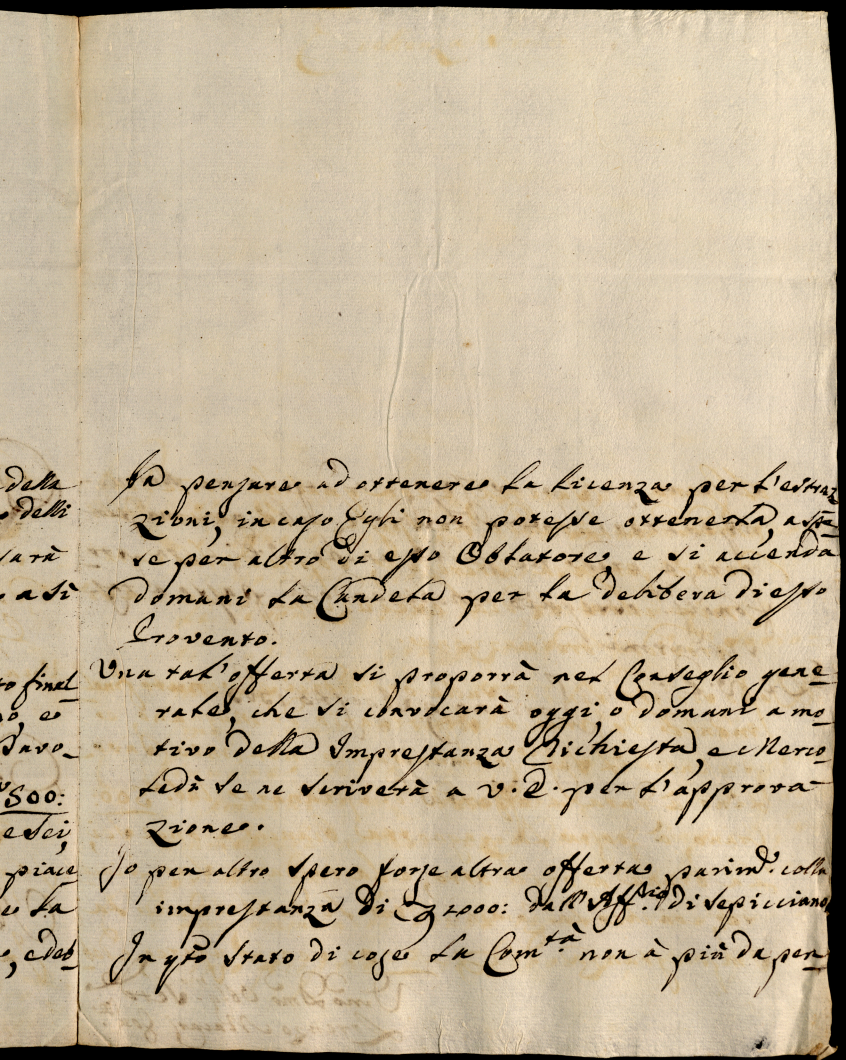 della
delli
sarà
a si
to final
no, e
Favo-
500:
e sei,
piace
e la
, e deb-
Fa pensare ad ottenere la licenza per l'estraz-
zioni, in caso Egli non potesse ottenerla, a spe-
se per altro di esso Oblatore, e si accenda
domani la Candela per la delibera di esso
Provento.
Una tal' offerta si proporrà nel Conseglio gene-
rale, che si convocarà oggi, o domani a mo-
tivo della Imprestanza richiesta, e Merco-
ledì se ne scriverà a V. E. per l'approva-
zione.
Io per altro spero forse altra offerta parimᵉ. colla
imprestanza di 1000: dall' Affᵗᵒ. di Sepicciano,
In qto stato di cose la Comᵗᵃ non à più da pen-